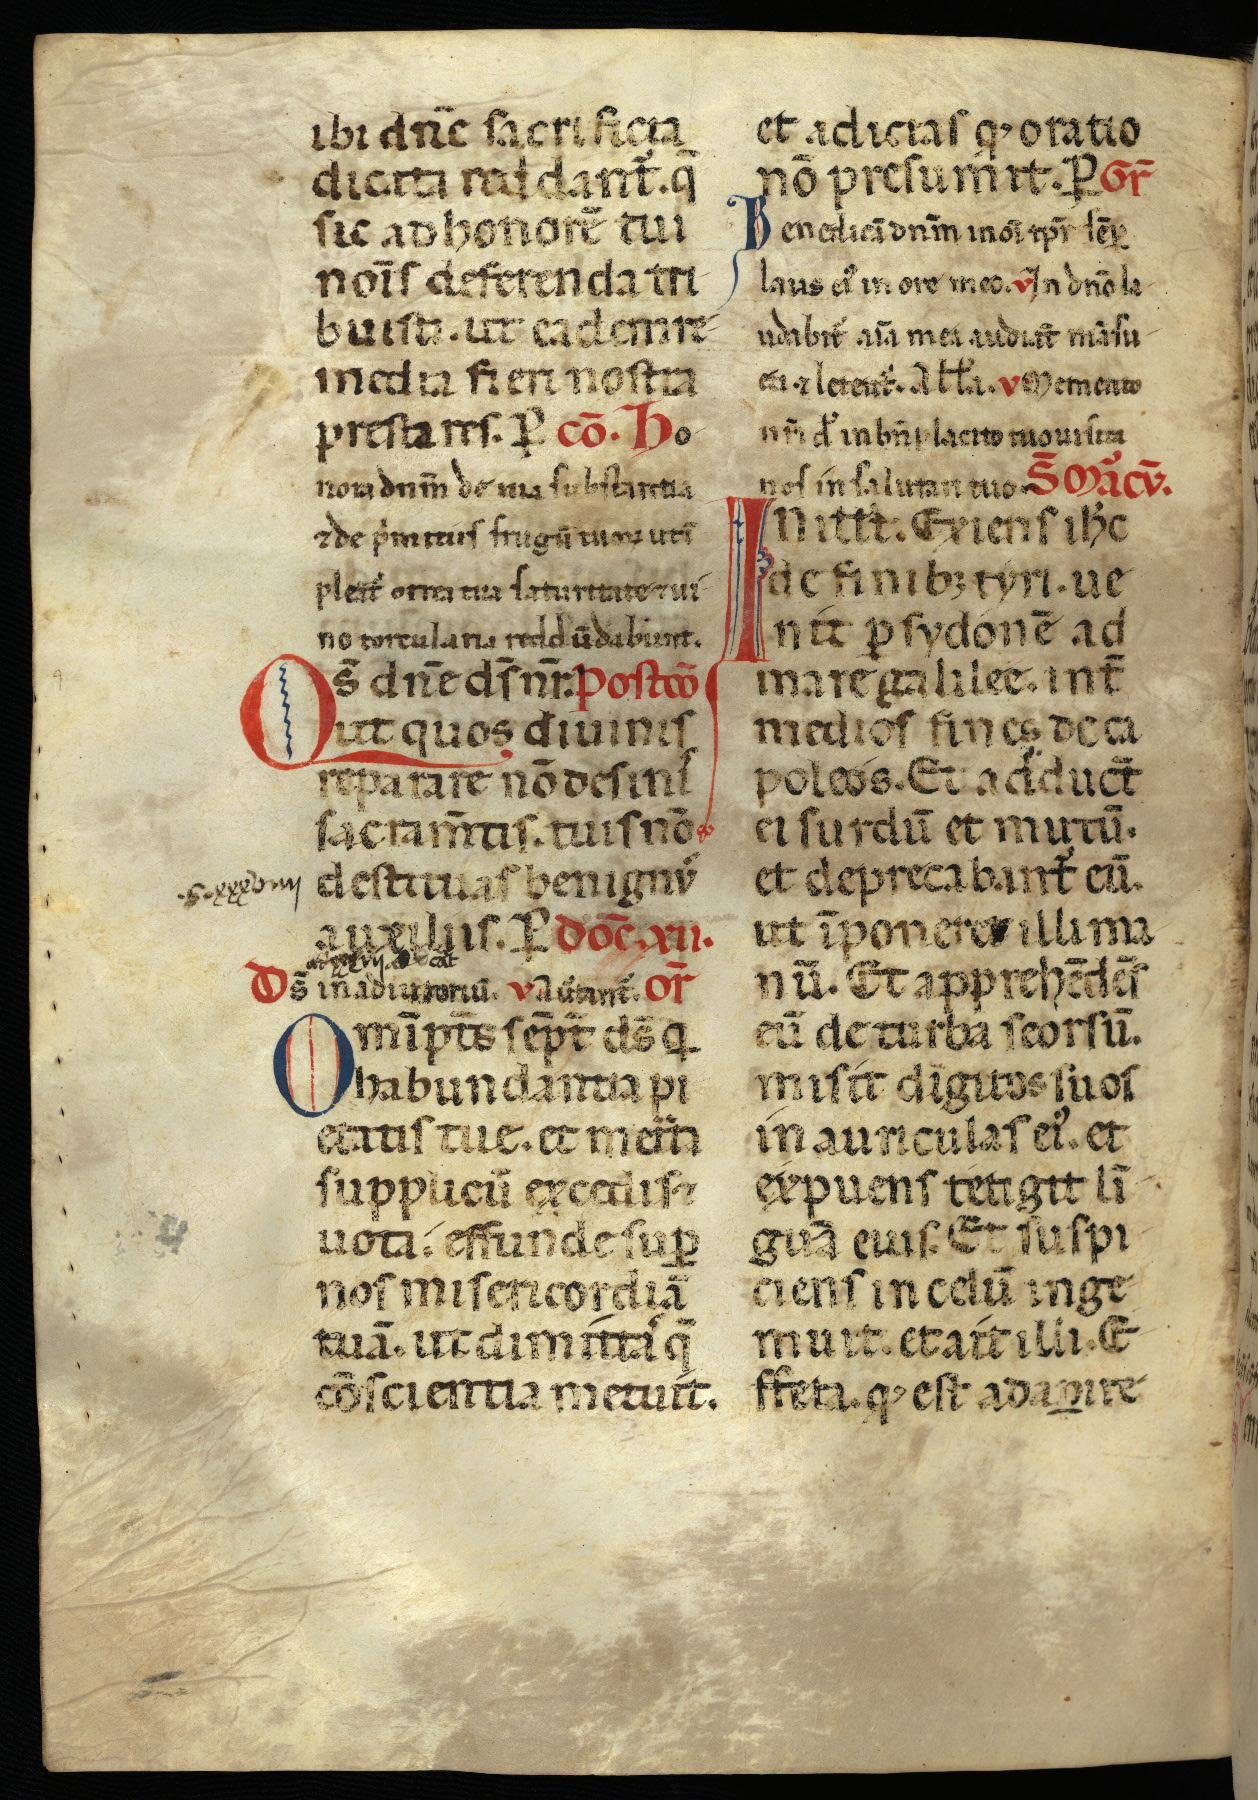 ibi dn̄e sacrificia
dicata reddant̄. q̄
sic ad honorē tui
noīs deferenda tri
buisti. ut eadem re
media fieri nostra
prestares. ꝑ cō. Ho
nora dnm̄ de tua substantia
⁊ de p̍mitiis frugū tuaꝝ ut ī
pleāt̄ orrea tua saturitate ⁊ ui
no torcularia redūdabunt.
Qs̄ dn̄e ds̄ nr̄. Postcō
ut quos diuinis
reparare nō desinis
sacram̄tis. tuis nō
destituas benignis
auxiliis. ꝑ Dōc. xii.
Ds̄ in adiutoriū. v Auertant̄. or̄
Omīpt̄s sēpt̄ ds̄ q
habundantia pi
etatis tue. et merita
supplicū excedis ⁊
uota. effunde suꝑ
nos misericordiā
tuā. ut dimittas q̄
cōscientia metuit.
et adicias qͥ oratio
nō presumit. ꝑ Gr̄
Benedicā dnm̄ in oī tp̄r sēꝑ
laus eiꝰ in ore meo. v In dn̄o la
udabit̄ aīa mea audiāt māsu
eti ⁊ letent̄. All̄a. v Memento
nr̄i dn̄e in bn̄placito tuo uisita
nos in salutari tuo. S̄ Mācū.
In ill̄t. Exiens ihc
de finibꝫ tyri. ue
nit ꝑ sydonē ad
mare galilee. int̄
medios fines deca
poleos. Et adducūt
ei surdū et mutū.
et deprecabant̄ eū.
ut īponeret illi ma
nū. Et apprehēdēs
eū de turba seorsū.
misit digitos suos
in auriculas eiꝰ. et
expuens tetigit lī
guā eius. Et suspi
ciens in celū inge
muit. et ait illi. E
ffeta. qͩ est adapire